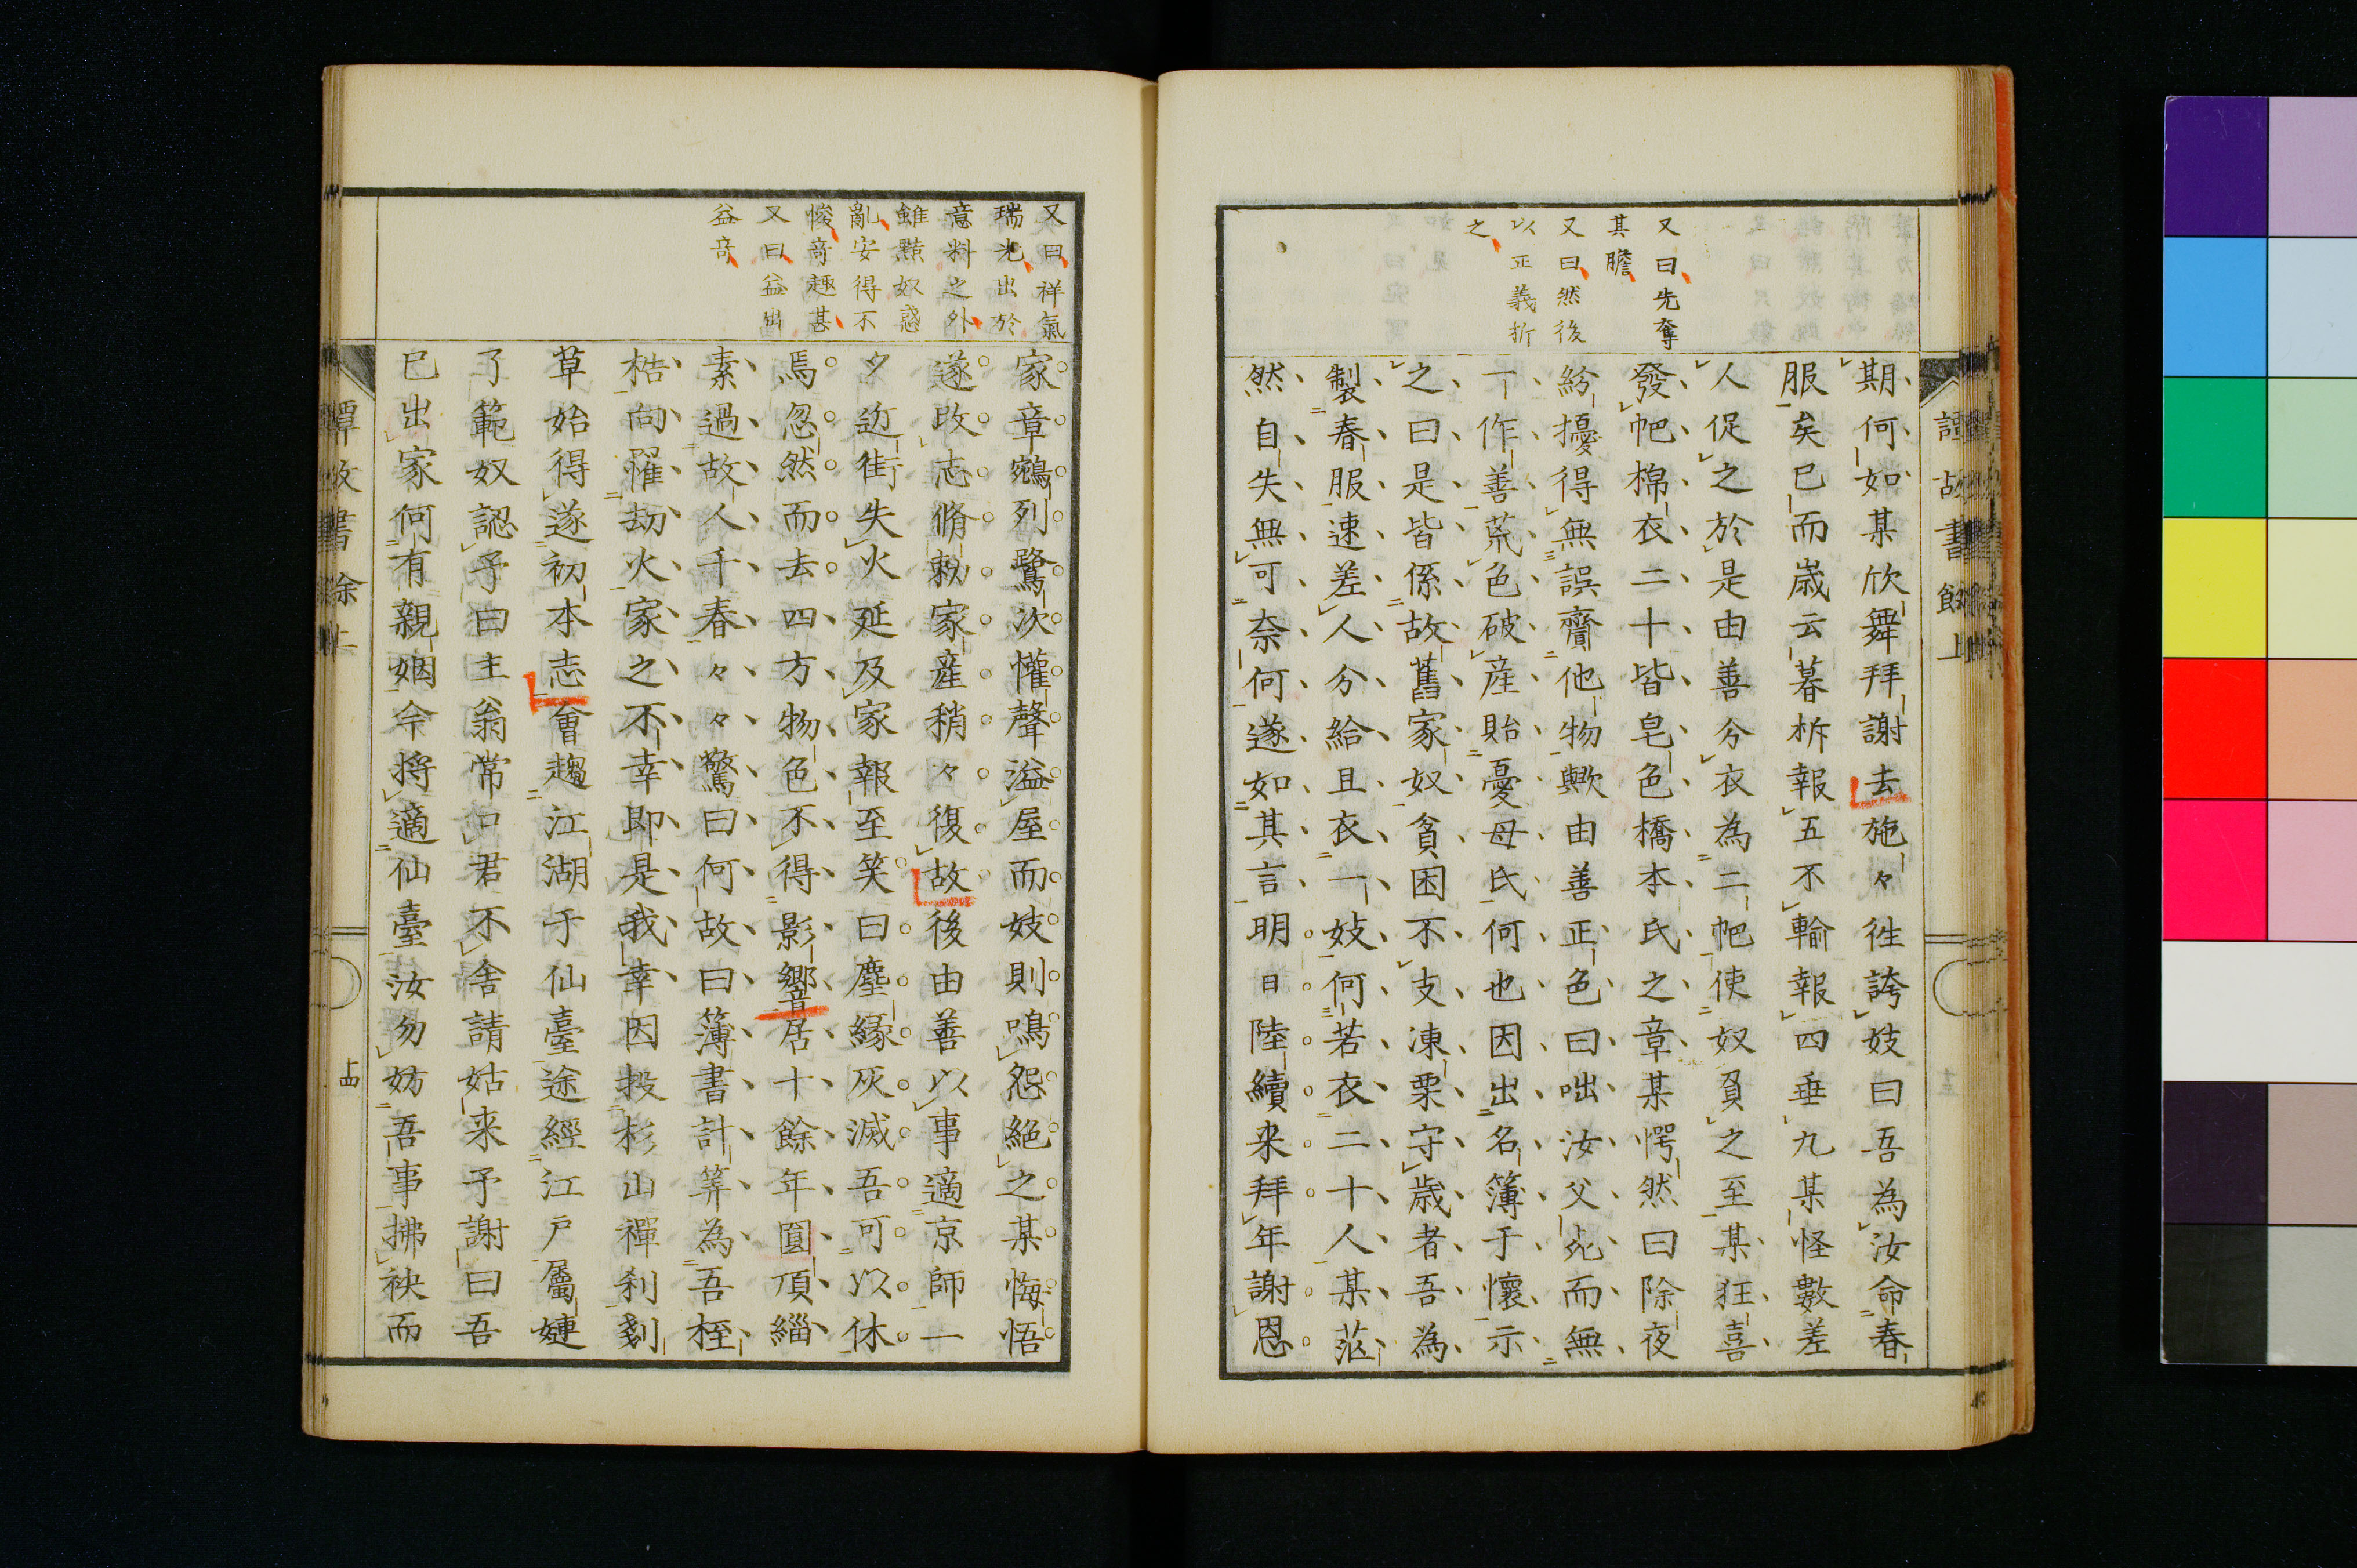 譚故書餘上
又曰先奪
其膽
又曰然後
以正義折
之
期何如某欣舞拜謝去施々徃誇妓曰吾為汝命春
服矣已而歳云暮柝報五不輸報四垂九某怪數差
人促之於是由善分衣為二帊使奴負之至某狂喜
發帊棉衣二十皆皂色橋本氏之章某愕然曰除夜
紛擾得無誤齎他物歟由善正色曰咄汝父死而無
一作善荒色破産貽憂母氏何也因出名簿于懷示
之曰是皆係故舊家奴貧困不支凍栗守歳者吾為
製春服速差人分給且衣一妓何若衣二十人某茫
然自失無可奈何遂如其言明日陸續来拜年謝恩
又曰祥氣
瑞光出於
意料之外
雖黠奴惑
亂安得不
悛竒趣甚
又曰益出
益竒
家章鵷列鷺次懽聲溢屋而妓則鳴怨絕之某悔悟
遂改志脩勑家産稍々復故後由善以事適京師一
夕近街失火延及家報至笑曰塵緣灰滅吾可以休
焉忽然而去四方物色不得影響居十餘年圓頂緇
素過故人千春々々驚曰何故曰簿書計筭為吾桎
梏向罹劫火家之不幸即是我幸因投杉山禪刹剗
草始得遂初本志會趨江湖于仙臺途經江戸屬嬗
了範奴認予曰主翁常口君不舍請姑来予謝曰吾
已出家何有親姻今将適仙臺汝勿妨吾事拂袂而
譚故書餘上
十四